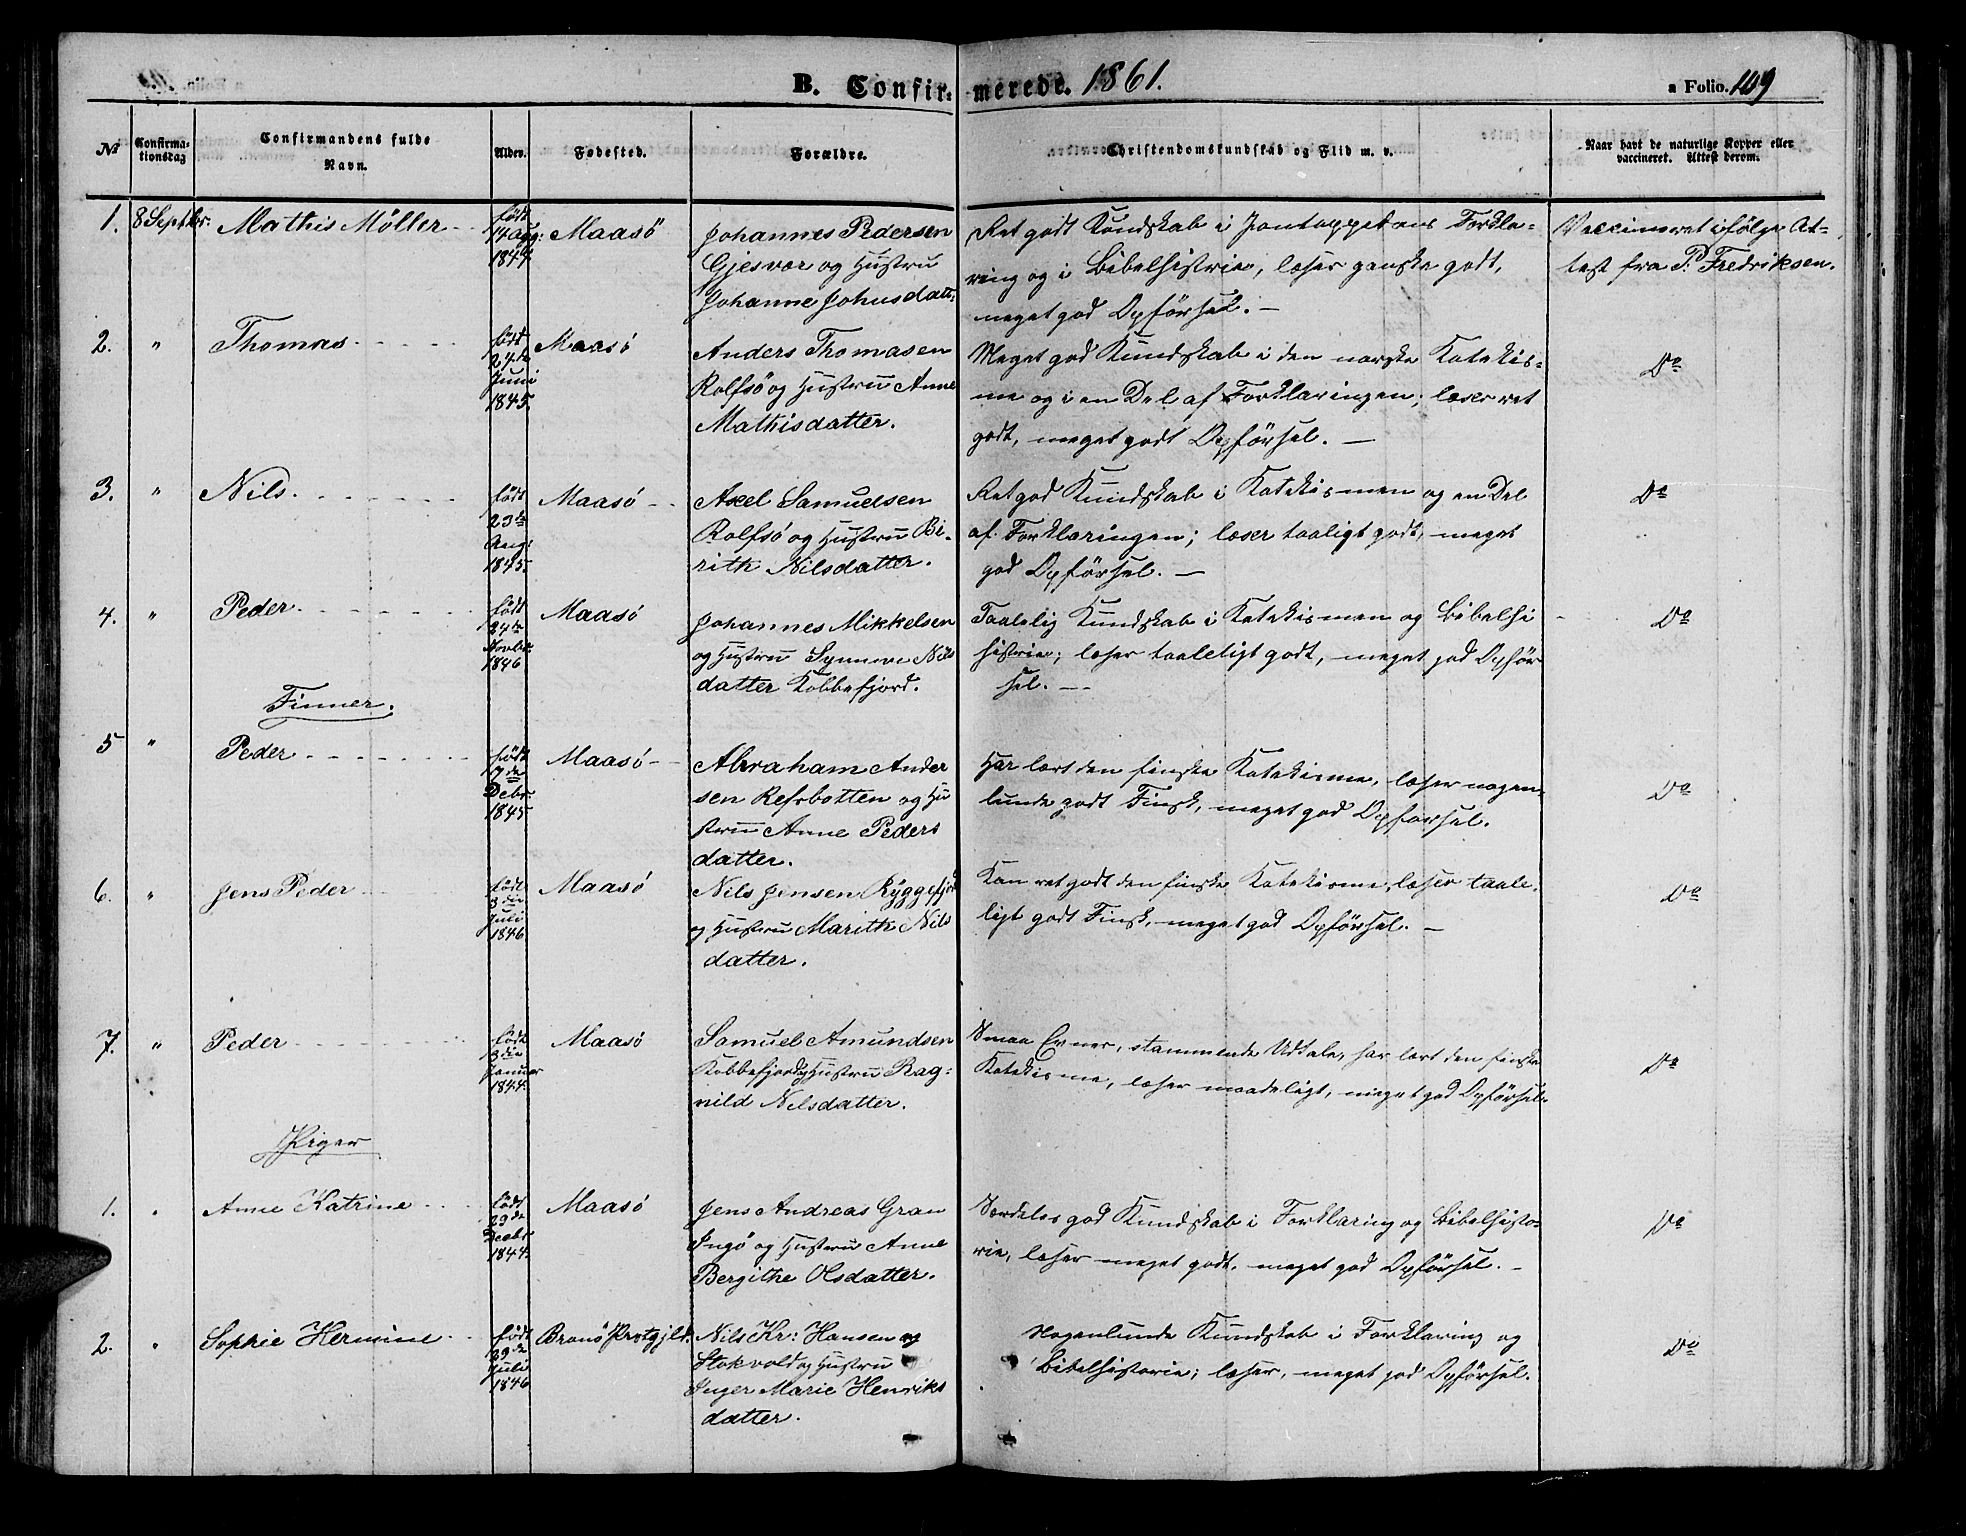 B. Confirmerede. 1861.
a Folio. 109
No
Confirmationsdag
Confirmandens fulde Navn.
Alder.
Fødested.
Forældre.
Christendomskundskab og Flid m. v.
Naar havt de naturlige Kopper eller vaccineret. Attest derom.
1. 8 Septbr: Mathis Møller født 14 Aug: Maasö
Johannes Pedersen
Gjesvær og Hustru
Johanne Johnsdatt:
Ret godt Kundskab i Pontoppidans Forkla-
ring og i Bibelhistrie, læser ganske godt,
meget god Opförsel. —
Vaccineret ifölge At-
test fra P. Fredriksen.
2. " Thomas født 24de Juni 1845. Maasö
Anders Thomasen
Rolfsö og Hustru Anne
Mathisdatter.
Meget god Kundskab i den norske Katekis-
me og i en Del af Forklaringen; læser ret
godt, meget godt Opförsel. —
Do
3. " Nils født 23de Aug: 1845. Maasö
Axel Samuelsen
Rolfsö og Hustru Be-
rith Nilsdatter.
Ret god Kundskab i Katekismen og en Del
af Forklaringen; læser taaligt godt, meget
god Opförsel. —
Do
4. " Peder født 24de Novbr: 1846 Maasö
Johannes Mikkelsen
og Hustru Synneve Nils
datter Kobbefjord.
Taalelig Kundskab i Katekismen og Bibelhi
histrie; læser taaleligt godt, meget god Opför
sel. —
Do
Finner.
5 " Peder født 17de Debr: 1845 Maasö
Abraham Ander
sen Refsbotten og Hu
stru Anne Peders
datter.
Har lært den finske Katekisme, læser nogen-
lunde godt Finsk, meget god Opførsel.
Do
6. " Jens Peder født 3die Juli 1846 Maasö
Nils Jensen Ryggefjord
og Hustru Marith Nils
datter.
Kan ret godt den finske Katekisme, læser taale-
ligt godt Finsk, meget god Opförsel. —
Do
7. " Peder født 3die Januar 1844. Maasö
Samuel Amundsen
Kobbefjord og Hustru Rag-
nild Nilsdatter.
Smaa Evner, stammende Udtale, har lært den finske
Katekisme, læser maadeligt, meget god Opförsel.
Do
Piger
1. " Anne Katrine født 29de Decbr 1844. Maasö
Jens Andreas Gran
Ingö og Hustru Anne
Bergithe Olsdatter.
Særdeles god Kundskab i Forklaring og Bibelhisto-
rie, læser meget godt, meget god Opförsel. —
Do
2. " Sophie Hermine født 29de Juli 1846 Brönö Prstgjld.
Nils Kr: Hansen og
Stokvold og Hustru
Inger Marie Henriks
datter.
Nogenlunde Kundskab i Forklaring og
Bibelhistorie; læser, meget god Opförsel.
Do